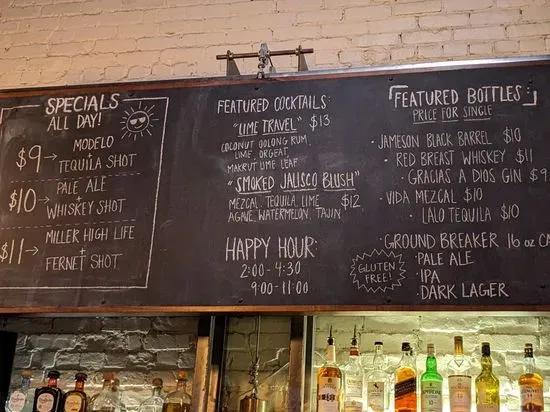 SPECIALS
ALL DAY!
$9 → MODELO
+
TEQUILA SHOT
$10 → PALE ALE
+
WHISKEY SHOT
$11 → MILLER HIGH LIFE
+
FERNET SHOT
FEATURED COCKTAILS:
"LIME TRAVEL" $13
COCONUT OOLONG RUM,
LIME, ORGEAT,
MAKRUT LIME LEAF
"SMOKED JALISCO BLUSH"
MEZCAL, TEQUILA, LIME, $12
AGAVE, WATERMELON, TAJIN
HAPPY HOUR:
2:00 - 4:30
9:00 - 11:00
FEATURED BOTTLES:
PRICE FOR SINGLE
· JAMESON BLACK BARREL $10
· RED BREAST WHISKEY $11
· GRACIAS A DIOS GIN $9
· VIDA MEZCAL $10
· LALO TEQUILA $10
· GROUND BREAKER 16 oz CA
GLUTEN FREE!
· PALE ALE
· IPA
· DARK LAGER